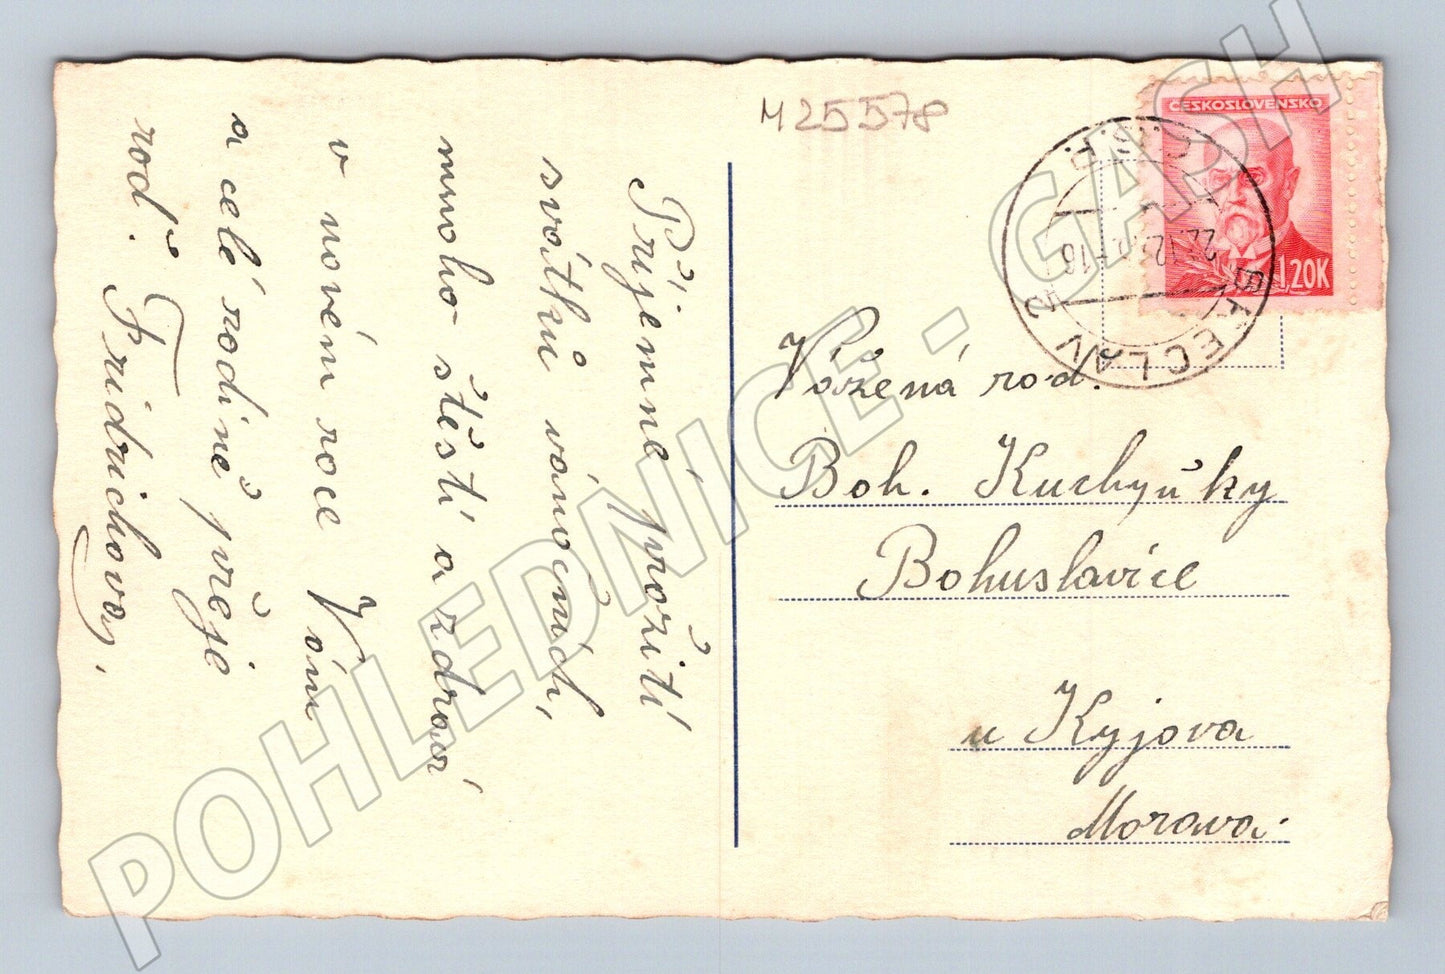 M25578
Příjemné prožití
svátků vánočních,
mnoho štěstí a zdraví
v novém roce Vám
a celé rodině přeje
rod. Fridrichova,
ČESKOSLOVENSKO
1,20K
BŘECLAV 2
Č.S.R.
Vážená rod.
Boh. Kuchyňky
Bohuslavice
u Kyjova
Morava.
POHLEDNICE - GASH